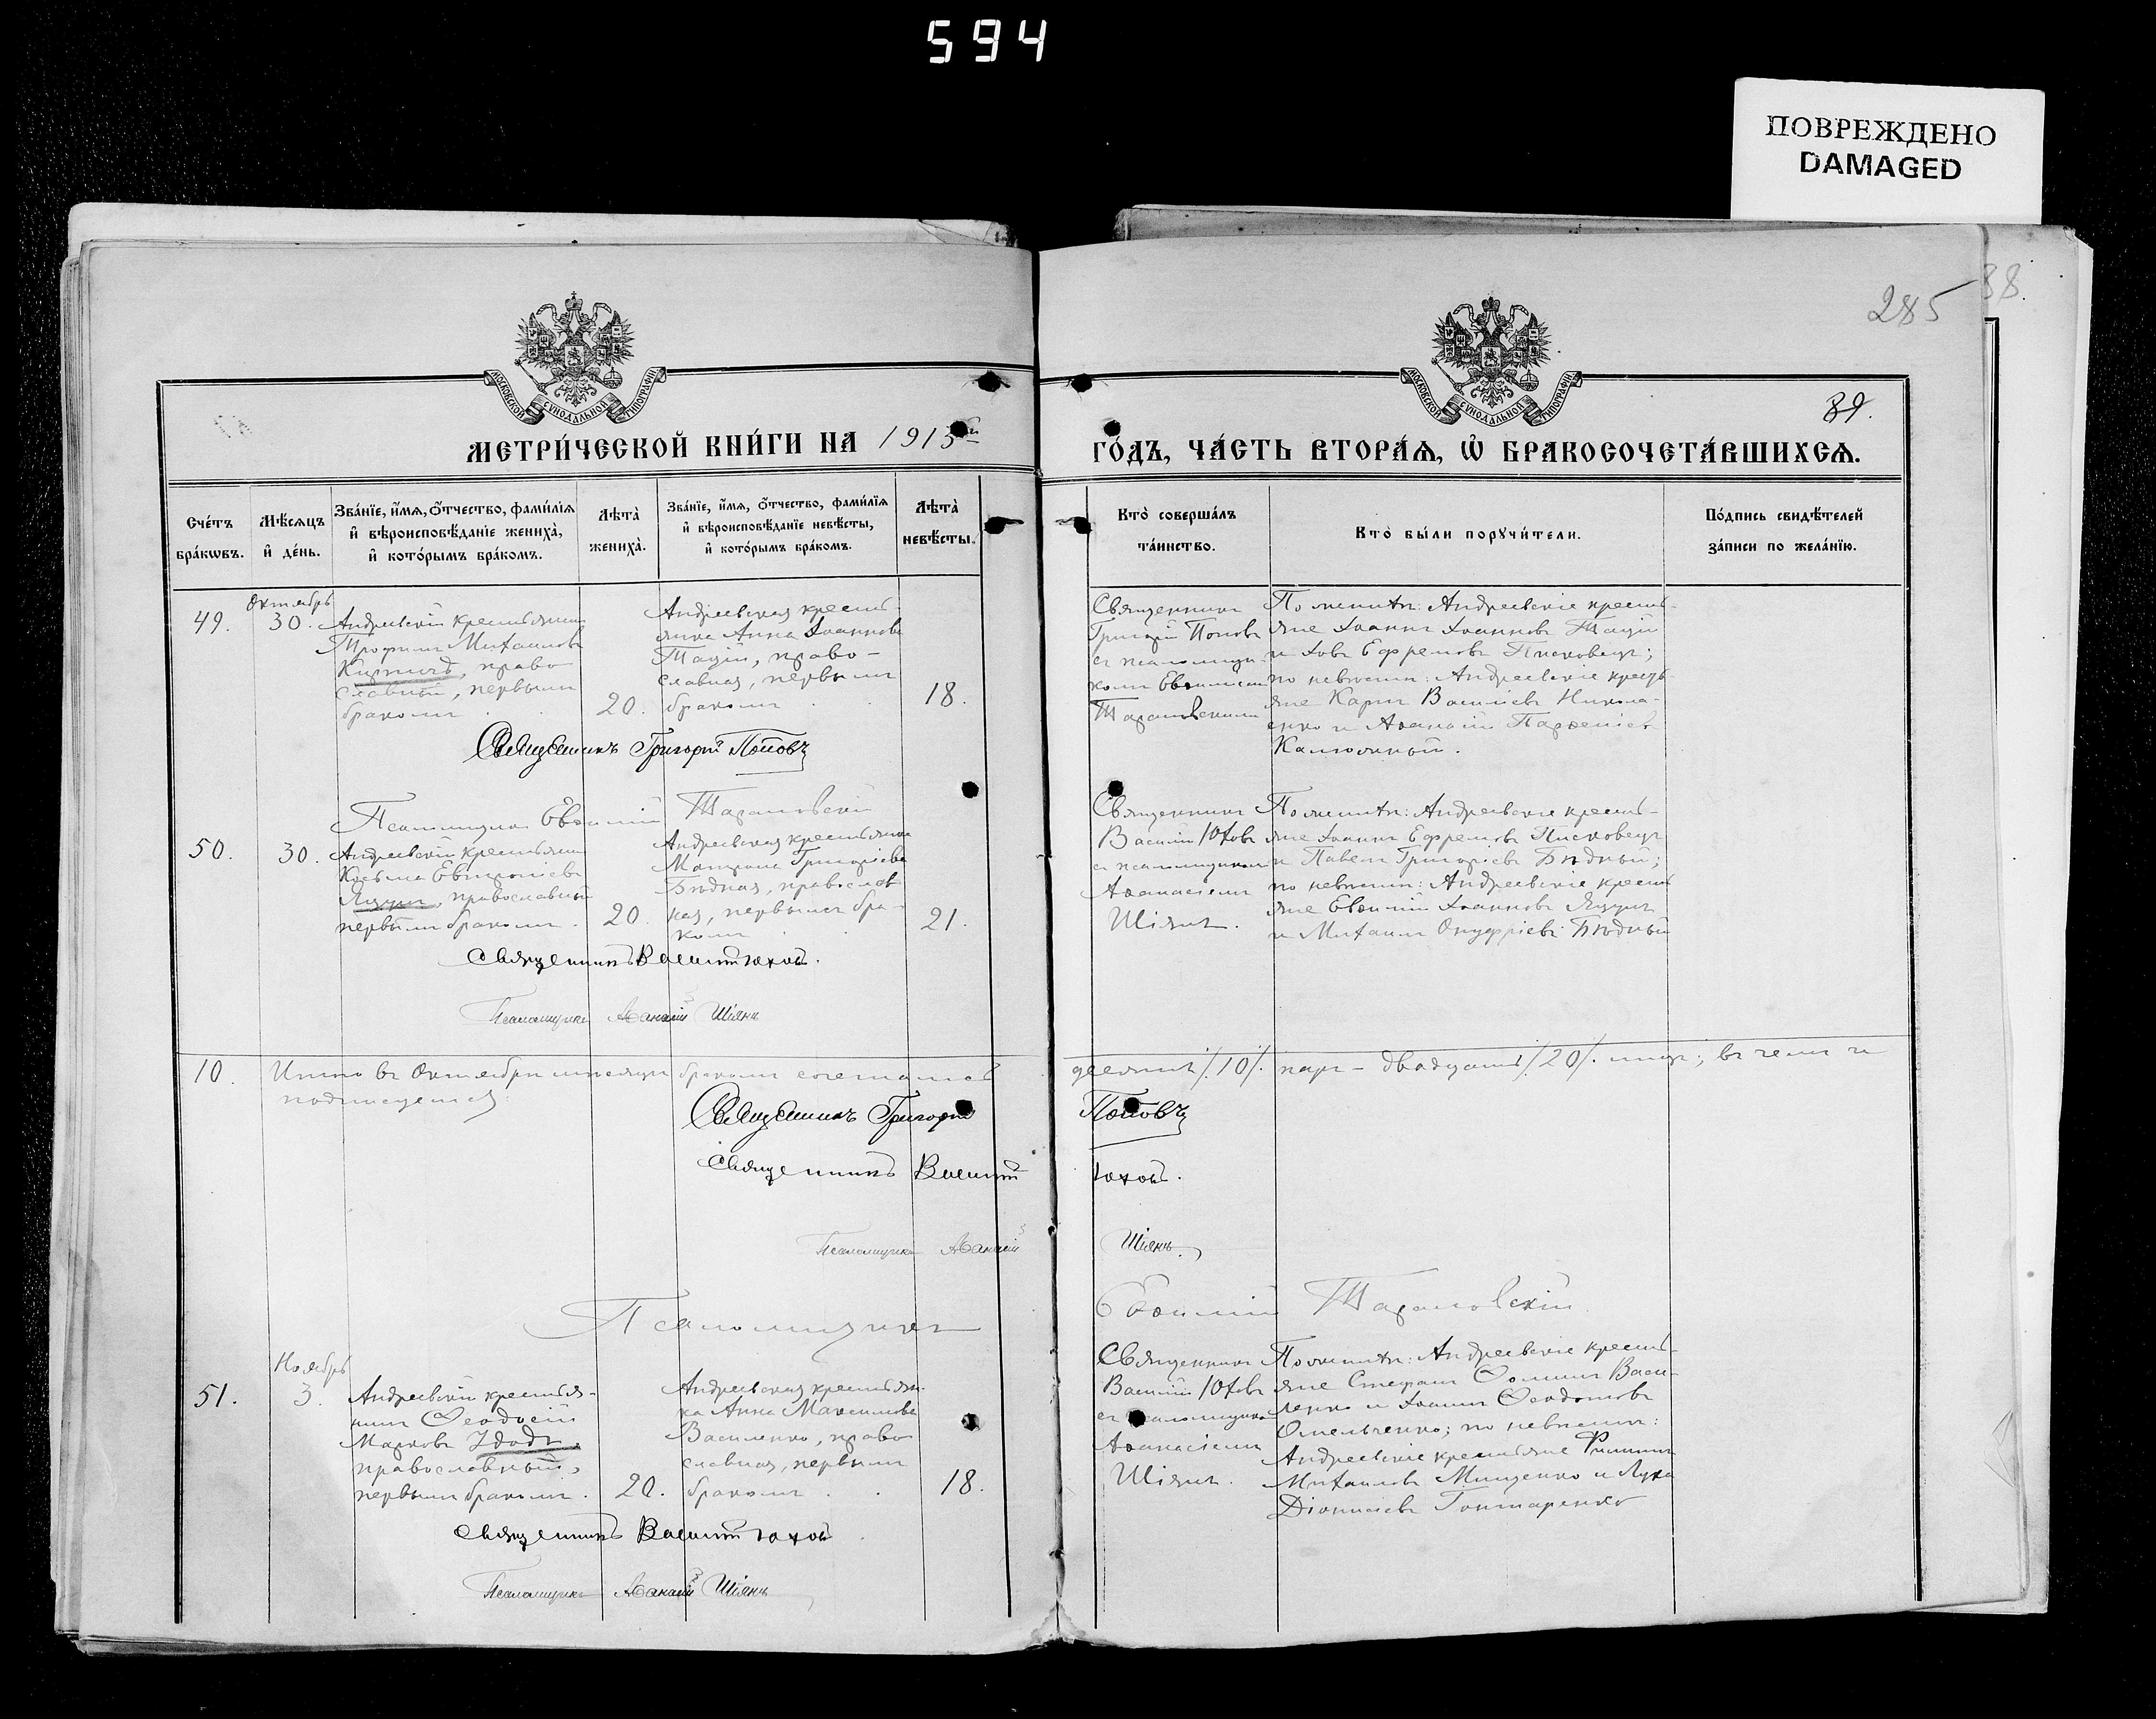 594
ПОВРЕЖДЕНО
DAMAGED
285
88.
89.
МОСКОВСКОЙ СУНОДАЛЬНОЙ ТИПОГРАФІИ
МОСКОВСКОЙ СУНОДАЛЬНОЙ ТИПОГРАФІИ
МЕТРИ́ЧЕСКОЙ КНИ́ГИ НА 1913й
ГО́ДЪ, ЧА́СТЬ ВТОРА́Ѧ, Ѡ҆ БРАКОСОЧЕТА́ВШИХСѦ.
Сче́тъ бра́кѡвъ.
Мѣ́сяцъ и҆ де́нь.
Зва́нїе, и҆́мѧ, ѻ҆́тчество, фами́лїѧ
и҆ вѣроисповѣ́данїе жениха̀,
и҆ кото́рымъ бра́комъ.
Лѣта̀ жениха̀.
Зва́нїе, и҆́мѧ, ѻ҆́тчество, фами́лїѧ
и҆ вѣроисповѣ́данїе невѣ́сты,
и҆ кото́рымъ бра́комъ.
Лѣта̀ невѣ́сты.
Кто̀ соверша́лъ
та́инство.
Кто̀ бы́ли порꙋчи́тели.
По́дпись свидѣ́телей
за́писи по жела́нїю.
49.
Октябрь
30.
Андреевскій крестьянинъ
Трофимъ Михаиловъ
православный, первымъ
бракомъ
20.
Андреевская кресть-
янка Анна Іоаннова
Тацій, право-
славная, первымъ
бракомъ
18.
Священникъ
Григорій Поповъ
съ псаломщи-
комъ Евѳиміемъ
Тарановскимъ
По женихѣ: Андреевскіе кресть-
яне Іоаннъ Іоанновъ Тацій
и Іовъ Ефремовъ Писковецъ;
по невѣстѣ: Андреевскіе кресть-
яне Карпъ Василіевъ Никола-
енко и Аѳанасій Парѳеніевъ
Священникъ Григорій Поповъ
Псаломщикъ Евѳимій Тарановскій
50.
30.
Андреевскій крестьянинъ
Косьма
Яцунъ, православный
первымъ бракомъ.
20.
Андреевская крестьянка
Матрона Григоріева
Бѣдная, православ
ная, первымъ бра-
комъ
21.
Священникъ
Василій Юховъ
съ псаломщикомъ
Аѳанасіемъ
Шіянъ.
По женихѣ: Андреевскіе кресть-
яне Іоаннъ Ефремовъ Писковецъ
и Павелъ Григоріевъ Бѣдный;
по невѣстѣ: Андреевскіе кресть
яне Евѳимій Іоанновъ Яцунъ
и Михаилъ Онуфріевъ Бѣдный
Священникъ Василій Юховъ.
Псаломщикъ Аѳанасій Шіянъ
10. Итого въ Октябрѣ мѣсяцѣ бракомъ сочеталось десять /10/. паръ - двадцать /20/. лицъ; въ чемъ и
подписуемся:
Священникъ Григорій Поповъ
Священникъ Василій Юховъ.
Псаломщикъ Аѳанасій Шіянъ.
Псаломщикъ Евѳимій Тарановскій.
51.
Ноябрь
3.
Андреевскій крестья-
нинъ Ѳеодосій
Марковъ Удодъ,
православный,
первымъ бракомъ.
20.
Андреевская крестьян-
ка Анна Максимова
Василенко, право
славная, первымъ
бракомъ
18.
Священникъ
Василій Юховъ
съ псаломщикомъ
Аѳанасіемъ
Шіянъ.
По женихѣ: Андреевскіе кресть-
яне Стефанъ Ѳоминъ Васи-
ленко и Іоаннъ Ѳеодотовъ
Омельченко; по невѣстѣ:
Андреевскіе крестьяне Филиппъ
Михаиловъ Мищенко и Лука
Діонисіевъ Гонтаренко
Священникъ Василій Юховъ
Псаломщикъ Аѳанасій Шіянъ